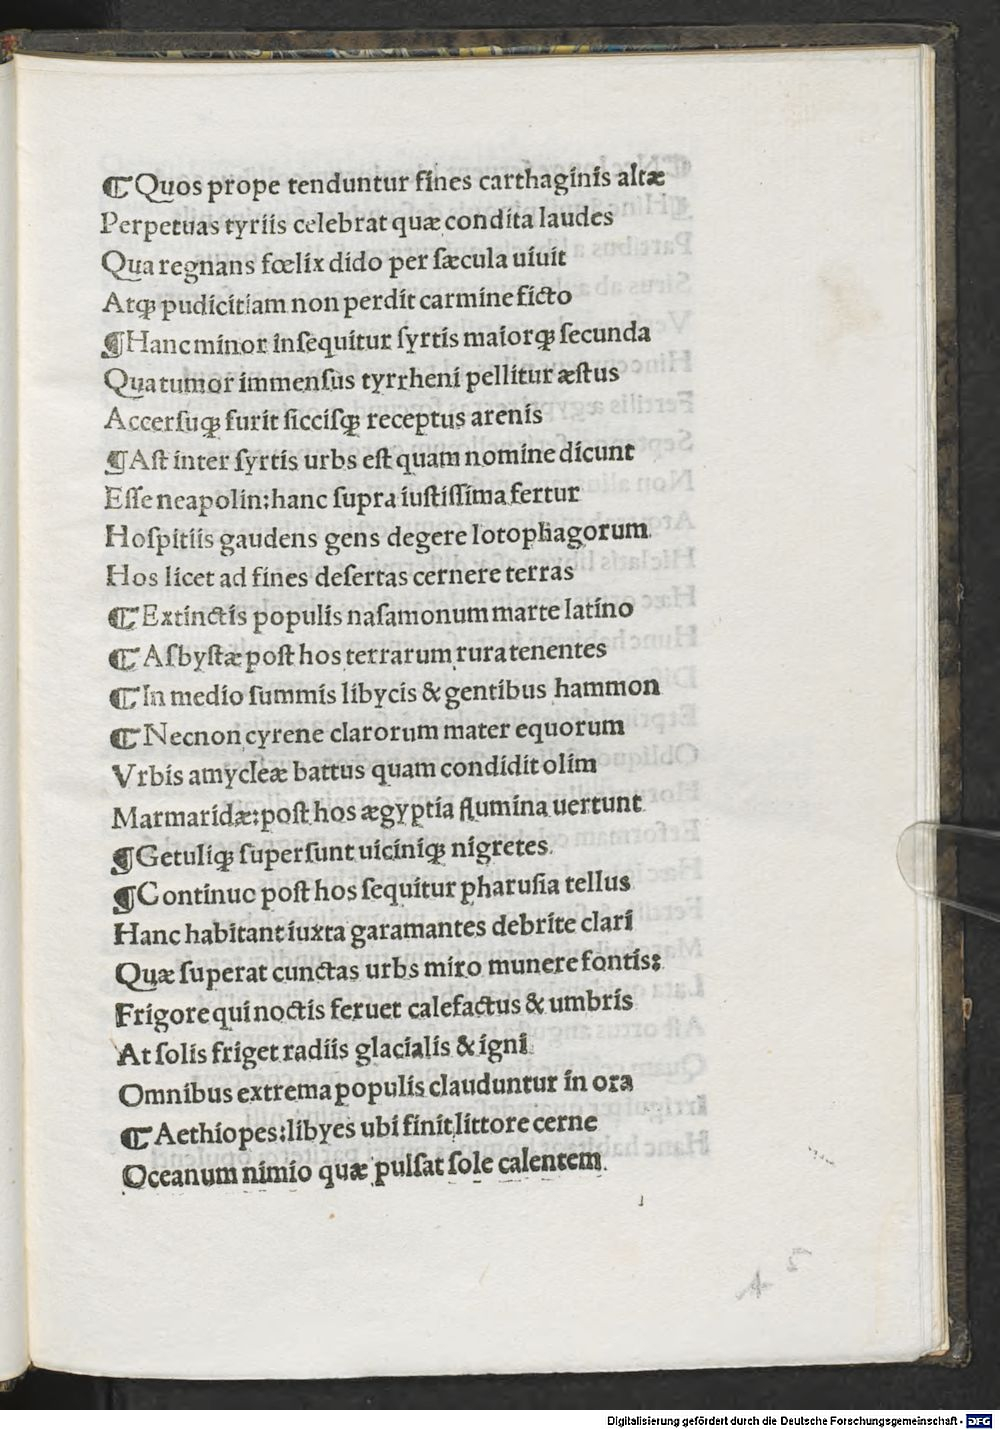 ⁋Quos prope tenduntur fines carthaginis altæ
Perpetuas tyriis celebrat quæ condita laudes
Qua regnans fœlix dido per ſæcula uiuit
Atqꝫ pudicitiam non perdit carmine ficto
¶Hanc minor inſequitur ſyrtis maiorqꝫ ſecunda
Qua tumor immenſus tyrrheni pellitur æſtus
Accerſuqꝫ furit ſicciſqꝫ receptus arenis
¶Aſt inter ſyrtis urbs eſt quam nomine dicunt
Eſſe neapolin:hanc ſupra iuſtiſſima fertur
Hoſpitiis gaudens gens degere lotophagorum
Hos licet ad fines deſertas cernere terras
⁋Extinctis populis naſamonum marte latino
⁋Aſbyſtæ poſt hos terrarum rura tenentes
⁋In medio ſummis libycis & gentibus hammon
⁋Necnon cyrene clarorum mater equorum
Vrbis amycleæ battus quam condidit olim
Marmaridæ:poſt hos ægyptia flumina uertunt
¶Getuliqꝫ ſuperſunt uiciniqꝫ nigretes
¶Continuo poſt hos ſequitur pharuſia tellus
Hanc habitant iuxta garamantes debrite clari
Quæ ſuperat cunctas urbs miro munere fontis:
Frigore qui noctis feruet calefactus & umbris
At ſolis friget radiis glacialis & igni
Omnibus extrema populis clauduntur in ora
⁋Aethiopes:libyes ubi finit littore cerne
Oceanum nimio quæ pulſat ſole calentem.
Digitalisierung gefördert durch die Deutsche Forschungsgemeinschaft - DFG